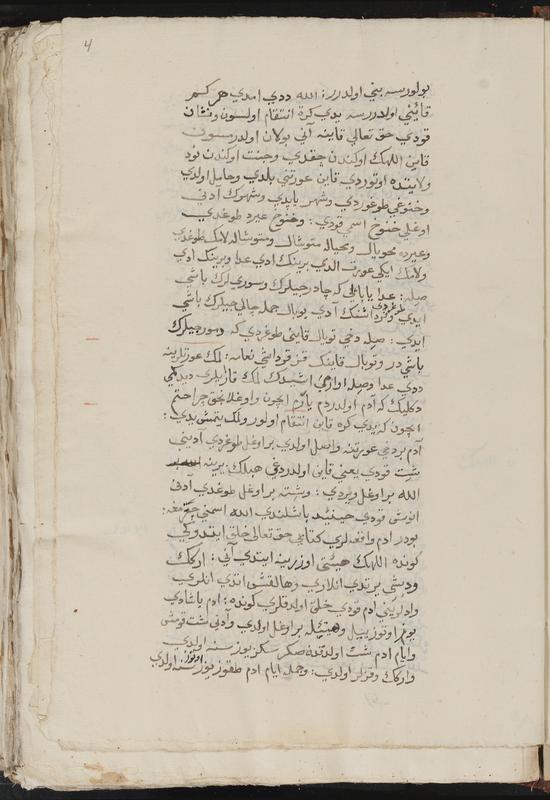 4
بولورسه بني اولدرر : الله ددي امدي هر كم
قايني اولدررسه يدي كره انتقام اولسون ونشان
قودي حق تعالي قاينه آني بولان اولدرمسون
قاين اللهك اوكندن چقدي وجنت اوكندن نود
ولايتنده اوتوردي قاين عورتني بلدي وحامل اولدي
وخنوخي طوغوردي وشهر ياپدي وشهرك ادني
اوغلي خنوخ اسمي قودي : وخنوخ عيرد طوغدي
وعيرد محويال ومحيال متوشال ومتوشال لامك طوغدي
ولامك ايكي عورت الدي برينك ادي عدا وبرينك ادي
صله : عدا يابالي كه چادرجيلرك وسوريلرك باشي
ايدي طوغردي وقرداشنك آدي يوبال جمله چالجيلرك باشي
ايدي : صله دخي توبال قايني طوغردي كه دمورجيلرك
باشيدر وتوبال قاينك قز قرداشي نعامه : لمك عورتلرينه
ددي عدا وصله اوازمي اشيدك لمك قاريلري
دكليك كه آدم اولدردم يارم ايچون واوغلانجق جراحتم
ايچون كه يدي كره قاين انتقام اولور ولمك يتمش يدي :
آدم بر دخي عورتنه واصل اولدي بر اوغل طوغردي آديني
شت قودي يعني قاين اولدردوغي هبلك يرينه
الله بر اوغل ويردي : وشته بر اوغل طوغدي آدني
انوش قودي حينئذ باشلندي الله اسمني چغرمغه :
بودر ادم واقعه لري كتابي حق تعالي خلق ايتدوكي
كونده اللهك هيئتي اوزرينه ايتدي آني : اركك
وديشي يرتدي انلاري والقش اتدي انلري
وادلريني ادم قودي خلق اولدقلري كونده : ادم ياشادي
يوز اوتوز ييل وهيئتيله بر اوغل اولدي وآدني شت قومش
وايام ادم شت اولدقدن صكره سكز يوز سنه اولدي
واركك وقزلر اولدي : وجمله ايام ادم طقوز يوز اوتوز سنه اولدي